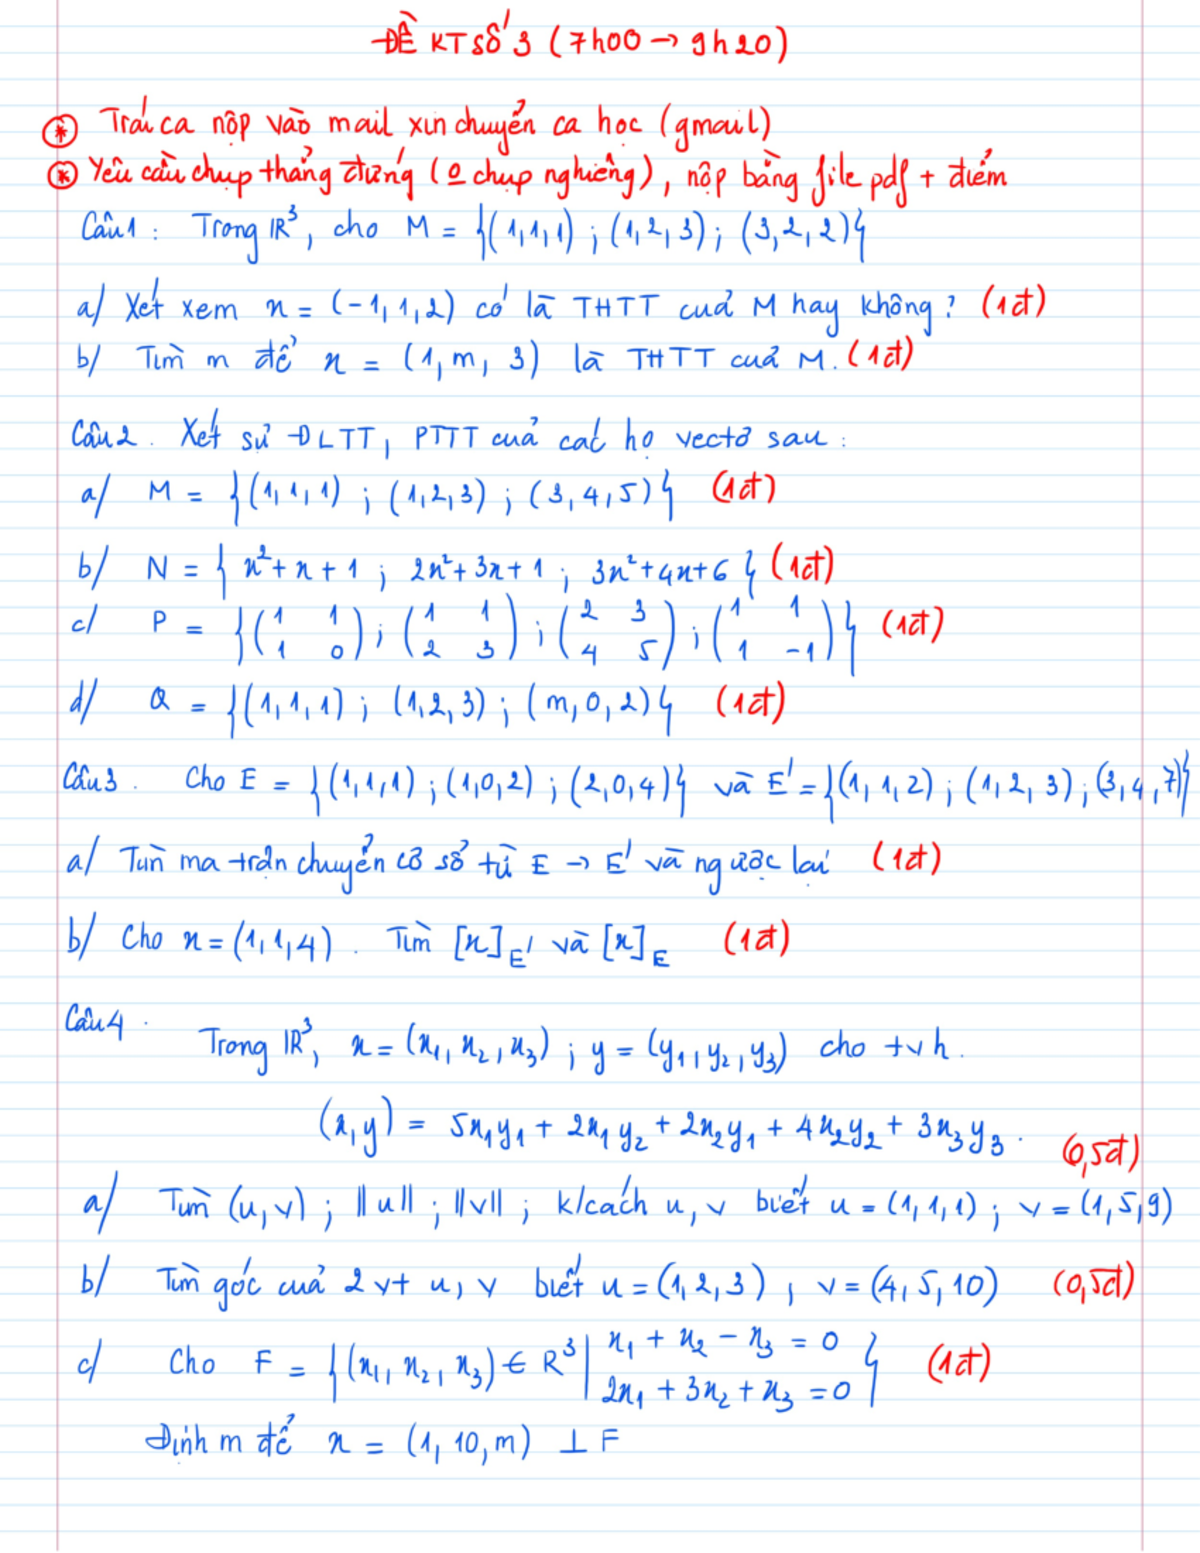 ĐỀ KT số 3 (7h00 → 9h20)
* Trái ca nộp vào mail xin chuyển ca học (gmail)
* Yêu cầu chụp thẳng đứng (0 chụp nghiêng), nộp bằng file pdf + điểm
Câu 1 : Trong ℝ³, cho M = {(1,1,1) ; (1,2,3) ; (3,2,2)}
a/ Xét xem x = (-1,1,2) có là THTT của M hay không? (1đ)
b/ Tìm m để x = (1, m, 3) là THTT của M. (1đ)
Câu 2. Xét sự ĐLTT, PTTT của các họ vectơ sau :
a/ M = {(1,1,1) ; (1,2,3) ; (3,4,5)} (1đ)
b/ N = {x² + x + 1 ; 2x² + 3x + 1 ; 3x² + 4x + 6} (1đ)
c/ P = {(1 1 / 1 0) ; (1 1 / 2 3) ; (2 3 / 4 5) ; (1 1 / 1 -1)} (1đ)
d/ Q = {(1,1,1) ; (1,2,3) ; (m,0,2)} (1đ)
Câu 3. Cho E = {(1,1,1) ; (1,0,2) ; (2,0,4)} và E' = {(1,1,2) ; (1,2,3) ; (3,4,7)}
a/ Tìm ma trận chuyển cơ sở từ E → E' và ngược lại (1đ)
b/ Cho x = (1,1,4). Tìm [x]_E' và [x]_E (1đ)
Câu 4.
Trong ℝ³, x = (x₁, x₂, x₃) ; y = (y₁, y₂, y₃) cho tvh.
(x,y) = 5x₁y₁ + 2x₁y₂ + 2x₂y₁ + 4x₂y₂ + 3x₃y₃. (0,5đ)
a/ Tìm (u,v) ; ||u|| ; ||v|| ; k/cách u, v biết u = (1,1,1) ; v = (1,5,9)
b/ Tìm góc của 2 vt u, v biết u = (1,2,3) ; v = (4,5,10) (0,5đ)
c/ Cho F = {(x₁, x₂, x₃) ∈ R³ | x₁ + x₂ - x₃ = 0
2x₁ + 3x₂ + x₃ = 0} (1đ)
Định m để x = (1, 10, m) ⊥ F